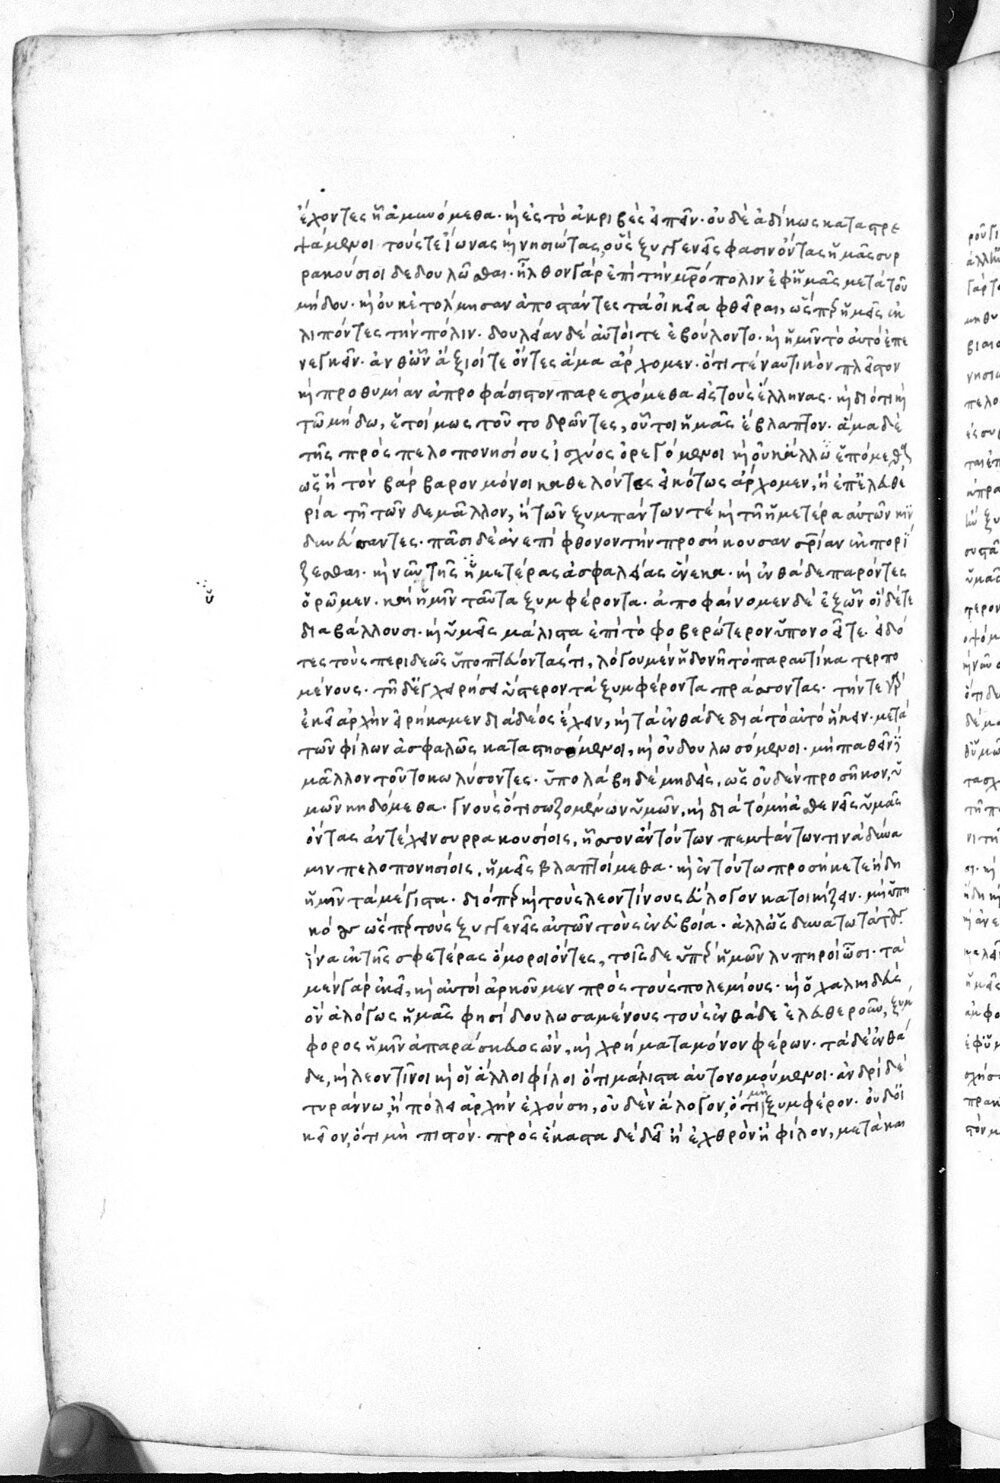 ἔχοντες ἢ ἀμυνόμεθα· καὶ ἐς τὸ ἀκριβὲς εἰπεῖν· οὐδὲ ἀδίκως καταστρε
ψάμενοι τούς τε ἴωνας καὶ νησιώτας, οὓς ξυγγενεῖς φασιν ὄντας ἡμᾶς συρ
ρακούσιοι δεδουλῶσθαι· ἦλθον γὰρ ἐπὶ τὴν μητρόπολιν ἐφ' ἡμᾶς μετὰ τοῦ
μήδου· καὶ οὐκ ἐτόλμησαν ἀποστάντες τὰ οἰκεῖα φθεῖραι, ὥσπερ ἡμεῖς ἐκ
λιπόντες τὴν πόλιν· δουλείαν δὲ αὐτοί τε ἐβούλοντο· καὶ ἡμῖν τὸ αὐτὸ ἐπε
νεγκεῖν· ἀνθ' ὧν ἄξιοί τε ὄντες ἅμα ἄρχομεν· ὅτι τε ναυτικὸν πλεῖστον
καὶ προθυμίαν ἀπροφάσιστον παρεσχόμεθα ἐς τοὺς ἕλληνας· καὶ διότι καὶ
τῶ μήδω, ἑτοίμως τοῦτο δρῶντες, οὗτοι ἡμᾶς ἔβλαπτον· ἅμα δὲ
τῆς πρὸς πελοπονησίους ἰσχύος ὀρεγόμενοι καὶ οὐκ ἄλλω ἑπόμεθα
ὡς ἢ τὸν βάρβαρον μόνοι καθελόντες εἰκότως ἄρχομεν, ἢ ἐπ' ἐλευθε
ρία τῆ τῶνδε μᾶλλον, ἢ τῶν ξυμπάντων τὲ καὶ τῆ ἡμετέρα αὐτῶν κιν
δυνεύσαντες· πᾶσι δὲ ἀνεπίφθονον τὴν προσήκουσαν σωτηρίαν ἐκπορί
ζεσθαι· καὶ νῦν τῆς ἡμετέρας ἀσφαλείας ἕνεκα· καὶ ἐνθάδε παρόντες
ὁρῶμεν· καὶ ἡμῖν ταῦτα ξυμφέροντα· ἀποφαίνομεν δὲ ἐξ ὧν οἵδέ τε
διαβάλλουσι· καὶ ὑμεῖς μάλιστα ἐπὶ τὸ φοβερώτερον ὑπονοεῖτε· εἰδό
τες τοὺς περιδεῶς ὑποπτεύοντάς τι, λόγου μὲν ἡδονῆ τὸ παραυτίκα τερπο
μένους· τῆ δ' ἐγχειρήσει ὕστερον τὰ ξυμφέροντα πράσσοντας· τήν τε γὰρ
ἐκεῖ ἀρχὴν εἰρήκαμεν διὰ δέος ἔχειν, καὶ τὰ ἐνθάδε διὰ τὸ αὐτὸ ἥκειν· μετὰ
τῶν φίλων ἀσφαλῶς καταστησόμενοι, καὶ οὐ δουλωσόμενοι· μὴ παθεῖν δὲ
μᾶλλον τοῦτο κωλύσοντες· ὑπολάβη δὲ μηδεὶς, ὡς οὐδὲν προσῆκον, ὑ
μῶν κηδόμεθα· γνοὺς ὅτι σωζομένων ὑμῶν, καὶ διὰ τὸ μὴ ἀσθενεῖς ὑμᾶς
ὄντας ἀντέχειν συρρακουσίοις, ἧσσον ἂν τούτων πεμψάντων τινὰ δύνα
μιν πελοπονησίοις, ἡμεῖς βλαπτοίμεθα· καὶ ἐν τούτω προσήκετε ἤδη
ἡμῖν τὰ μέγιστα· διόπερ καὶ τοὺς λεοντίνους εὔλογον κατοικίζειν· μὴ ὑπη
κόους ὥσπερ τοὺς ξυγγενεῖς αὐτῶν τοὺς ἐν εὐβοία· ἀλλ' ὡς δυνατωτάτους
ἵνα ἐκ τῆς σφετέρας ὅμοροι ὄντες, τοῖσδε ὑπὲρ ἡμῶν λυπηροὶ ὦσι· τὰ
μὲν γὰρ ἐκεῖ, καὶ αὐτοὶ ἀρκοῦμεν πρὸς τοὺς πολεμίους· καὶ ὁ χαλκιδεὺς
ὃν ἀλόγως ἡμᾶς φησὶ δουλωσαμένους τοὺς ἐνθάδε ἐλευθεροῦν, ξύμ
φορος ἡμῖν ἀπαράσκευος ὢν, καὶ χρήματα μόνον φέρων· τὰ δὲ ἐνθά
δε, καὶ λεοντῖνοι καὶ οἱ ἄλλοι φίλοι ὅτι μάλιστα αὐτονομούμενοι· ἀνδρὶ δὲ
τυράννω, ἢ πόλει ἀρχὴν ἐχούση, οὐδὲν ἄλογον, ὅτι μὴ ξυμφέρον· οὐδ' οἰ
κεῖον, ὅτι μὴ πιστόν· πρὸς ἕκαστα δὲ δεῖ ἢ ἐχθρὸν ἢ φίλον, μετὰ και